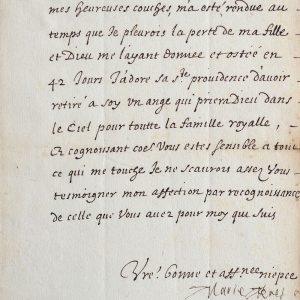 mes heureuses couches m'a osté rendue au
temps que Je pleurois la perte de ma fille
et Dieu me layant donnee et ostée en
42 Jours J'adore sa ste providence d'avoir
retiré a soy Un ange qui priera Dieu dans
le Ciel pour toutte la famille royalle,
Et cognoissant coe Vous estes sensible a tout
ce qui me touche Je ne scaurois assez Vous
tesmoigner mon affection par recognoissance
de celle que Vous avez pour moy qui suis
Vre bonne et affnee niepce
Marie